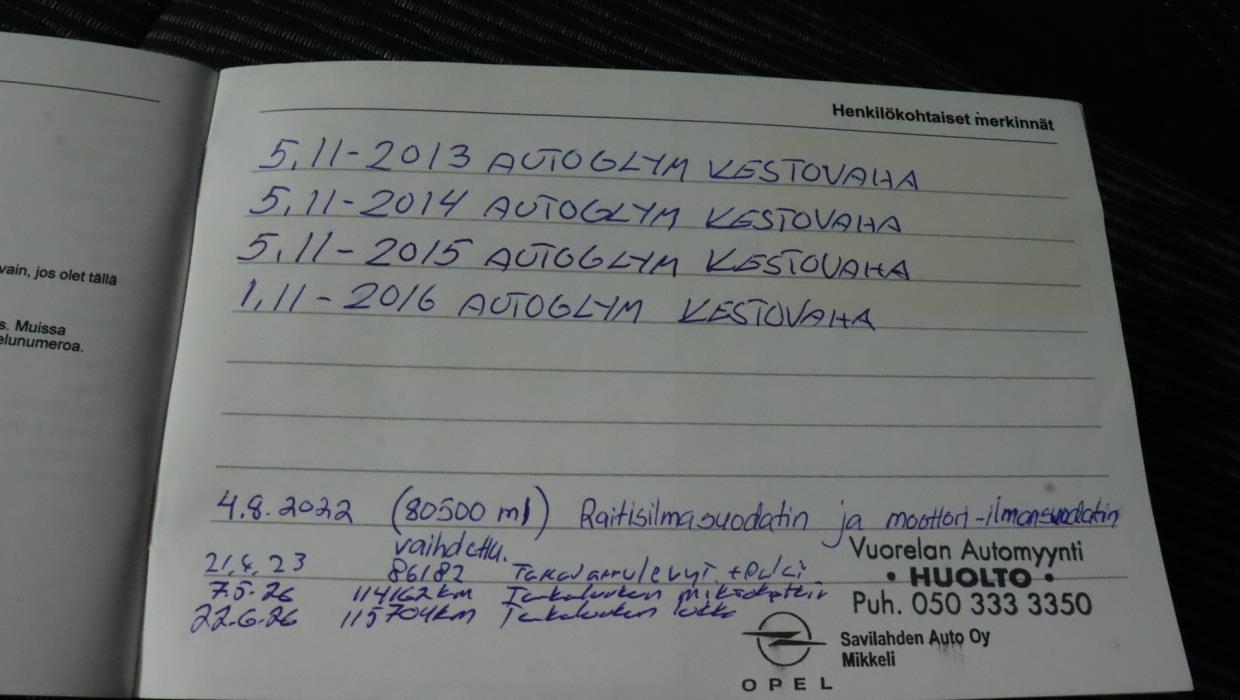 Henkilökohtaiset merkinnät
5.11-2013 AUTOGLYM KESTOVAHA
5.11-2014 AUTOGLYM KESTOVAHA
5.11-2015 AUTOGLYM KESTOVAHA
1.11-2016 AUTOGLYM KESTOVAHA
vain, jos olet tällä
s. Muissa
elunumeroa.
4.8.2022 (80500 ml) Raitisilmasuodatin ja moottori-ilmansuodatin
vaihdettu.
86182 Takajarrulevyt
7.5.26 114162km Takaluukun
22.6.26 115704km Takaluukun lukko
Vuorelan Automyynti
• HUOLTO •
Puh. 050 333 3350
Savilahden Auto Oy
Mikkeli
OPEL